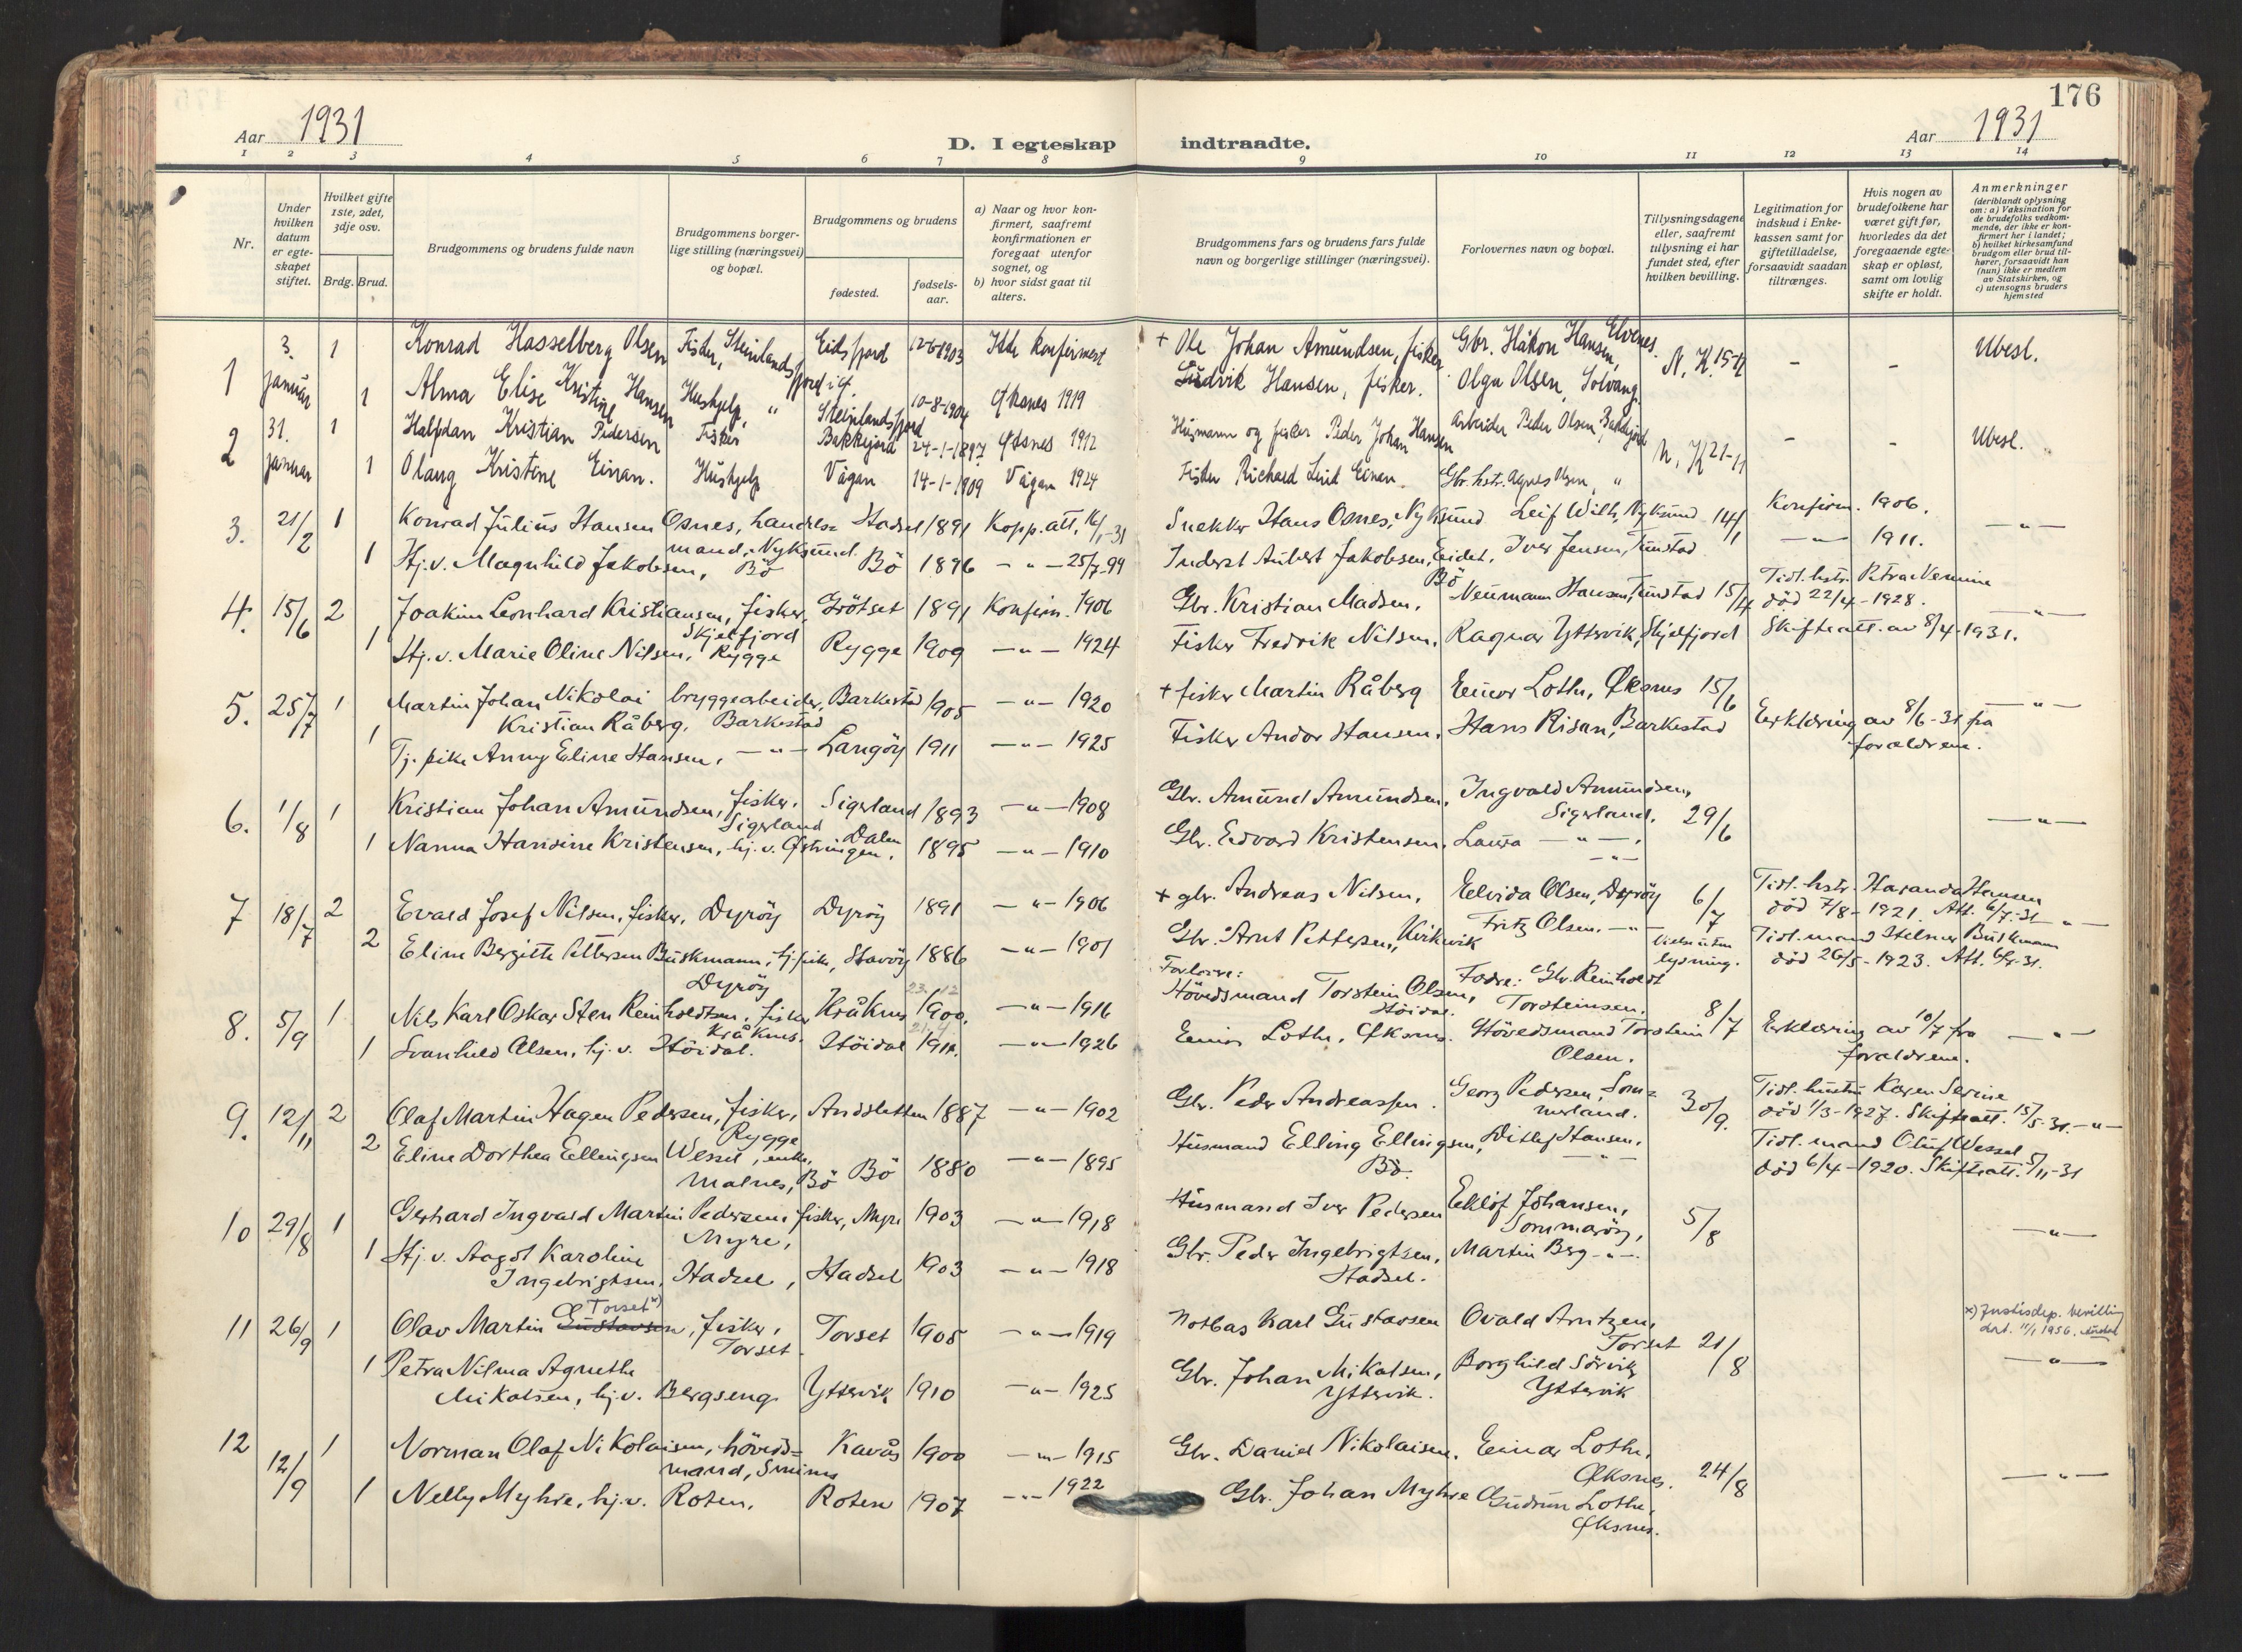 176
Aar 1931
D. I egteskap indtraadte.
Aar 1931
1 2 3 4 5 6 7 8 9 10 11 12 13 14
Nr.
Under hvilken datum er egteskapet stiftet.
Hvilket gifte 1ste, 2det, 3dje osv.
Brdg. Brud.
Brudgommens og brudens fulde navn
Brudgommens borgerlige stilling (næringsvei) og bopæl.
Brudgommens og brudens
fødested.
fødselsaar.
a) Naar og hvor konfirmert, saafremt konfirmationen er foregaat utenfor sognet, og
b) hvor sidst gaat til alters.
Brudgommens fars og brudens fars fulde navn og borgerlige stillinger (næringsvei).
Forlovernes navn og bopæl.
Tillysningsdagene eller, saafremt tillysning ei har fundet sted, efter hvilken bevilling.
Legitimation for indskud i Enkekassen samt for giftetilladelse, forsaavidt saadan tiltrænges.
Hvis nogen av brudefolkene har været gift før, hvorledes da det foregaaende egteskap er opløst, samt om lovlig skifte er holdt.
Anmerkninger (deriblandt oplysning om: a) Vaksination for de brudefolks vedkommende, der ikke er konfirmert her i landet; b) hvilket kirkesamfund brudgom eller brud tilhører, forsaavidt han (hun) ikke er medlem av Statskirken, og c) utensogns bruders hjemsted
1 3. januar 1 Konrad Hasselberg Olsen Fisker, Steinlandsfjord Eidsfjord 12-6-1903 Ikke konfirmert + Ole Johan Amundsen, fisker Gbr. Håkon Hansen, Elvenes. N. K. 15-11 - - Ubesl.
1 Alma Elise Kristine Hansen Hushjelp, " Steinlandsfjord 10-8-1904 Øksnes 1919 Ludvik Hansen, fisker. Olga Olsen, Solvang
2 31. januar 1 Halfdan Kristian Pedersen Fisker Bakkejord 24-1-1897 Øksnes 1912 Husmann og fisker Peder Johan Hansen Arbeider Peder Olsen, Bakkejord N. K 21-11 - - Ubesl.
1 Olaug Kristine Einan. Hushjelp Vågan 14-1-1909 Vågan 1924 Fisker Richard Einan. Gbr. hstr. Agnes Olsen "
3. 21/2 1 Konrad Julius Hansen Osnes, handels= Hadsel 1891 Kopp. att. 16/1-31 Snekker Hans Osnes, Nyksund Leif Wilh, Nyksund 14/1 Konfirm. 1906. - " -
mand, Nyksund.
1 Hj. v. Magnhild Jakobsen, Bö Bö 1896 - " - 25/7-99 Inderst Aubert Jakobsen, Eidet, Bö Iver Jensen, Tunstad - " - 1911.
4. 15/6 2 Joakim Leonhard Kristiansen, fisker, Grötset 1891 Konfirm. 1906 Gbr. Kristian Madsen. Neumann Hansen, Tunstad 15/4 Tidl. hstr. Petra
Skjelfjord død 22/4-1928. - " -
1 Hj. v. Marie Oline Nilsen, Rygge Rygge 1909 - " - 1924 Fisker Fredrik Nilsen. Ragnar Yttervik, Skjelfjord Skifteatt. av 8/4-1931.
5. 25/7 1 Martin Johan Nikolai bryggearbeider, Barkestad 1905 - " - 1920 + fisker Martin Råberg Einar Lothe, Øksnes 15/6 - " -
Kristian Råberg. Barkestad
1 Tj. pike Anny Eline Hansen, - " - Langöy 1911 - " - 1925 Fisker Andor Hansen. Hans Risan, Barkestad Erklæring av 8/6-31 fra forældrene.
6. 1/8 1 Kristian Johan Amundsen, fisker. Sigerland 1893 - " - 1908 Gbr. Amund Amundsen. Ingvald Amundsen, Sigerland. 29/6 - " -
Sigerland
1 Nanna Hansine Kristensen, hj. v. Østningen. Dalen 1895 - " - 1910 Gbr. Edvard Kristensen. Laura - " -
7 18/7 2 Evald Josef Nilsen, fisker, Dyröy Dyröy 1891 - " - 1906 + gbr. Andreas Nilsen. Elvida Olsen, Dyröy 6/7 Tidl. hstr. Haranda Hansen
død 7/8-1921. Att. 6/7-31 - " -
2 Eline Bergitte Pettersen Buskmann, tj. pike, Dyröy 1886 - " - 1901 Gbr. Arnt Pettersen, Kirkvik Fritz Olsen. - " - Vielse uten lysning. Tidl. mand Hilmer Buskmann
død 26/5-1923. Att. 6/7-31.
8. 5/9 1 Nils Karl Oskar Sten Reinholdtsen, fisker Kråknes 23.12 1900. - " - 1916 Forlovere: Hövedsmand Torstein Olsen, Höidal. Fædre: Gbr. Reinholdt Torsteinsen. 8/7
Kråknes.
1 Svanhild Olsen, hj. v. Höidal. Höidal - " - 1926 Einar Lothe. Øksnes. Hövedsmand Torstein Olsen. Erklæring av 10/7 fra forældrene. - " -
9. 12/11 2 Olaf Martin Hagen Pedersen, fisker, Andsletten 1887 - " - 1902 Gbr. Peder Andreassen. Georg Pedersen, Som= merland. 30/9. Tidl. hustru Karen Serine
Rygge død 1/3-1927. Skifteatt. 15/5-31. - " -
2 Eline Dorthea Ellingsen Wessel, enke, Malnes, Bö Bö 1880 - " - 1895 Husmand Elling Ellingsen, Bö. Ditlef Hansen. - " - Tidl. mand Oluf Wessel
død 6/4-1920. Skifteatt. 5/11-31
10 29/8 1 Gerhard Ingvald Martin Pedersen, fisker, Myre 1903 - " - 1918 Husmand Iver Pedersen Eklöf Johansen, Sommaröy, 5/8 - " -
Myre,
1 Hj. v. Aagot Karoline Ingebrigtsen, Hadsel, Hadsel 1903 - " - 1918 Gbr. Peder Ingebrigtsen, Hadsel. Martin Berg - " -
11 26/9 1 Olav Martin Gustavsen Torset x), fisker, Torset Torset 1905 - " - 1919 Notbas Karl Gustavsen Ovald Arntzen, Torset 21/8 x) Justisdep. bevilling dat. 11/1 1956.
1 Petra Nilma Agnethe Mikalsen, hj. v. Bergseng Yttervik 1910 - " - 1925 Gbr. Johan Mikalsen, Yttervik. Borghild Sörvik Yttervik - " -
12 12/9 1 Norman Olaf Nikolaisen, höveds= mand, Smines Kavås 1900 - " - 1915 Gbr. Daniel Nikolaisen. Einar Lothe, Øksnes. 24/8 - " -
1 Nelly Myhre, hj. v. Roten. Roten 1907 - " - 1922 Gbr. Johan Myhre Gudrun Lothe, Øksnes.